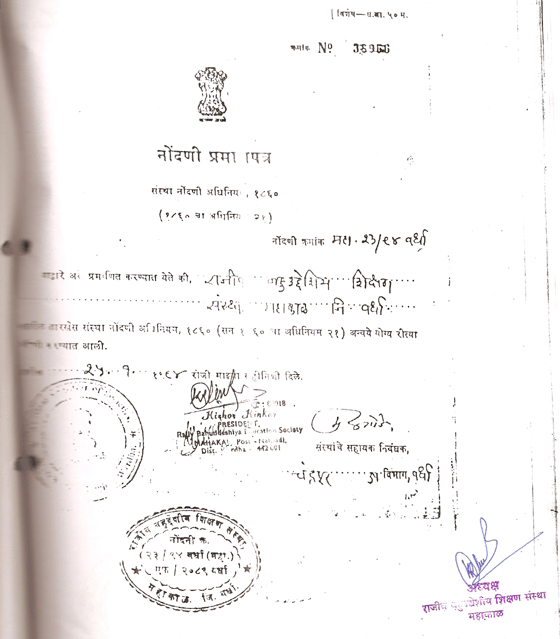 (विशेष—
क्रमांक Nº
नोंदणी प्रमा पत्र
संस्था नोंदणी अधिनियम, १८६०
(१८६० चा अधिनियम २१)
नोंदणी क्रमांक महा. २३/९४ वर्धा
प्रमाणित करण्यात येते की, राजीव बहुउद्देशिय शिक्षण
संस्था महाकाळ जि वर्धा
संस्था नोंदणी अधिनियम, १८६० (सन १८६० चा अधिनियम २१) अन्वये योग्य रीत्या
करण्यात आली.
रोजी माझ्या सहीनिशी दिले.
Kishor Kinkar
PRESIDENT
Rajiv Bahuuddeshiya Education Society
MAHAKAL, Post
Dist. Wardha 442001
संस्थांचे सहायक निबंधक,
विभाग, वर्धा
राजीव बहुउद्देशीय शिक्षण संस्था,
नोंदनी क्र.
२३/९४ वर्धा (महा.)
एफ/२०८९ वर्धा
महाकाळ. (जि. वर्धा)
अध्यक्ष
राजीव बहुउद्देशीय शिक्षण संस्था
महाकाळ